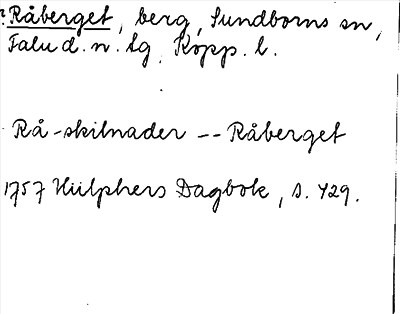 Råberget, berg, Sundborns sn,
Falu d. n. tg, Kopp. l.
Rå-skilnader -- Råberget
1757 Hülphers Dagbok, s. 429.